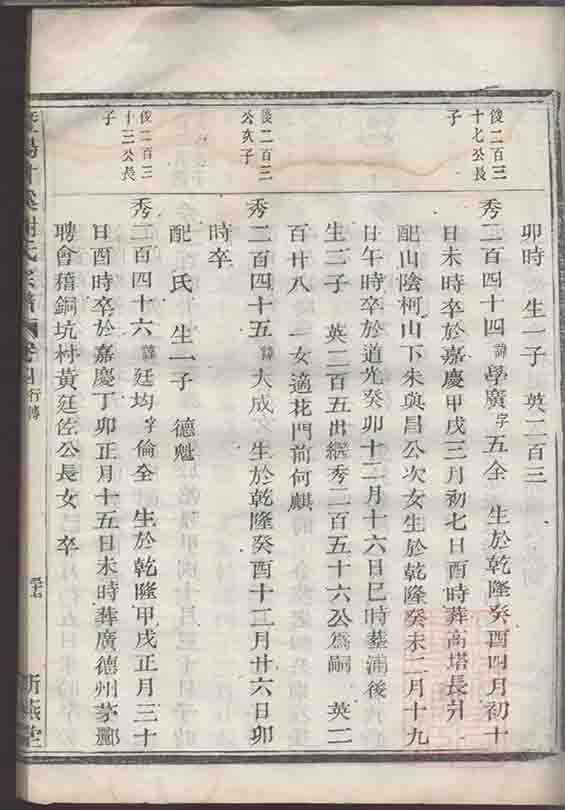 卯時 生一子 英二百三
俊二百三
十七公長
子
秀二百四十四 諱學廣 字五余 生於乾隆癸酉四月初十
日未時卒於嘉慶甲戌三月初七日酉時葬高塔長
配山陰柯山下朱與昌公次女生於乾隆癸未二月十九
日午時卒於道光癸卯十二月十六日巳時葬蒲後
生二子 英二百五出繼秀二百五十六公為嗣 英二
百廿八 一女適花門前何麒
俊二百三
公次子
秀二百四十五 諱大成 生於乾隆癸酉十二月廿六日卯
時卒
配 氏 生一子 德魁
俊二百三
十三公長
子
秀二百四十六 諱廷均 字倫全 生於乾隆甲戌正月三十
日酉時卒於嘉慶丁卯正月十五日未時葬廣德州茅鄽
聘會稽銅坑村黃廷 公長女 卒
暨陽 溪謝氏宗譜 卷 行傳